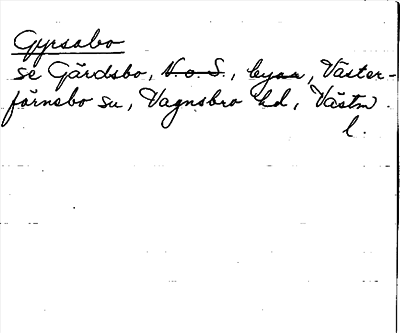 Gyrsabo
se Gärdsbo, N. o S., byar, Väster-
färnebo sn, Vagnsbro hd, Västm.
l.